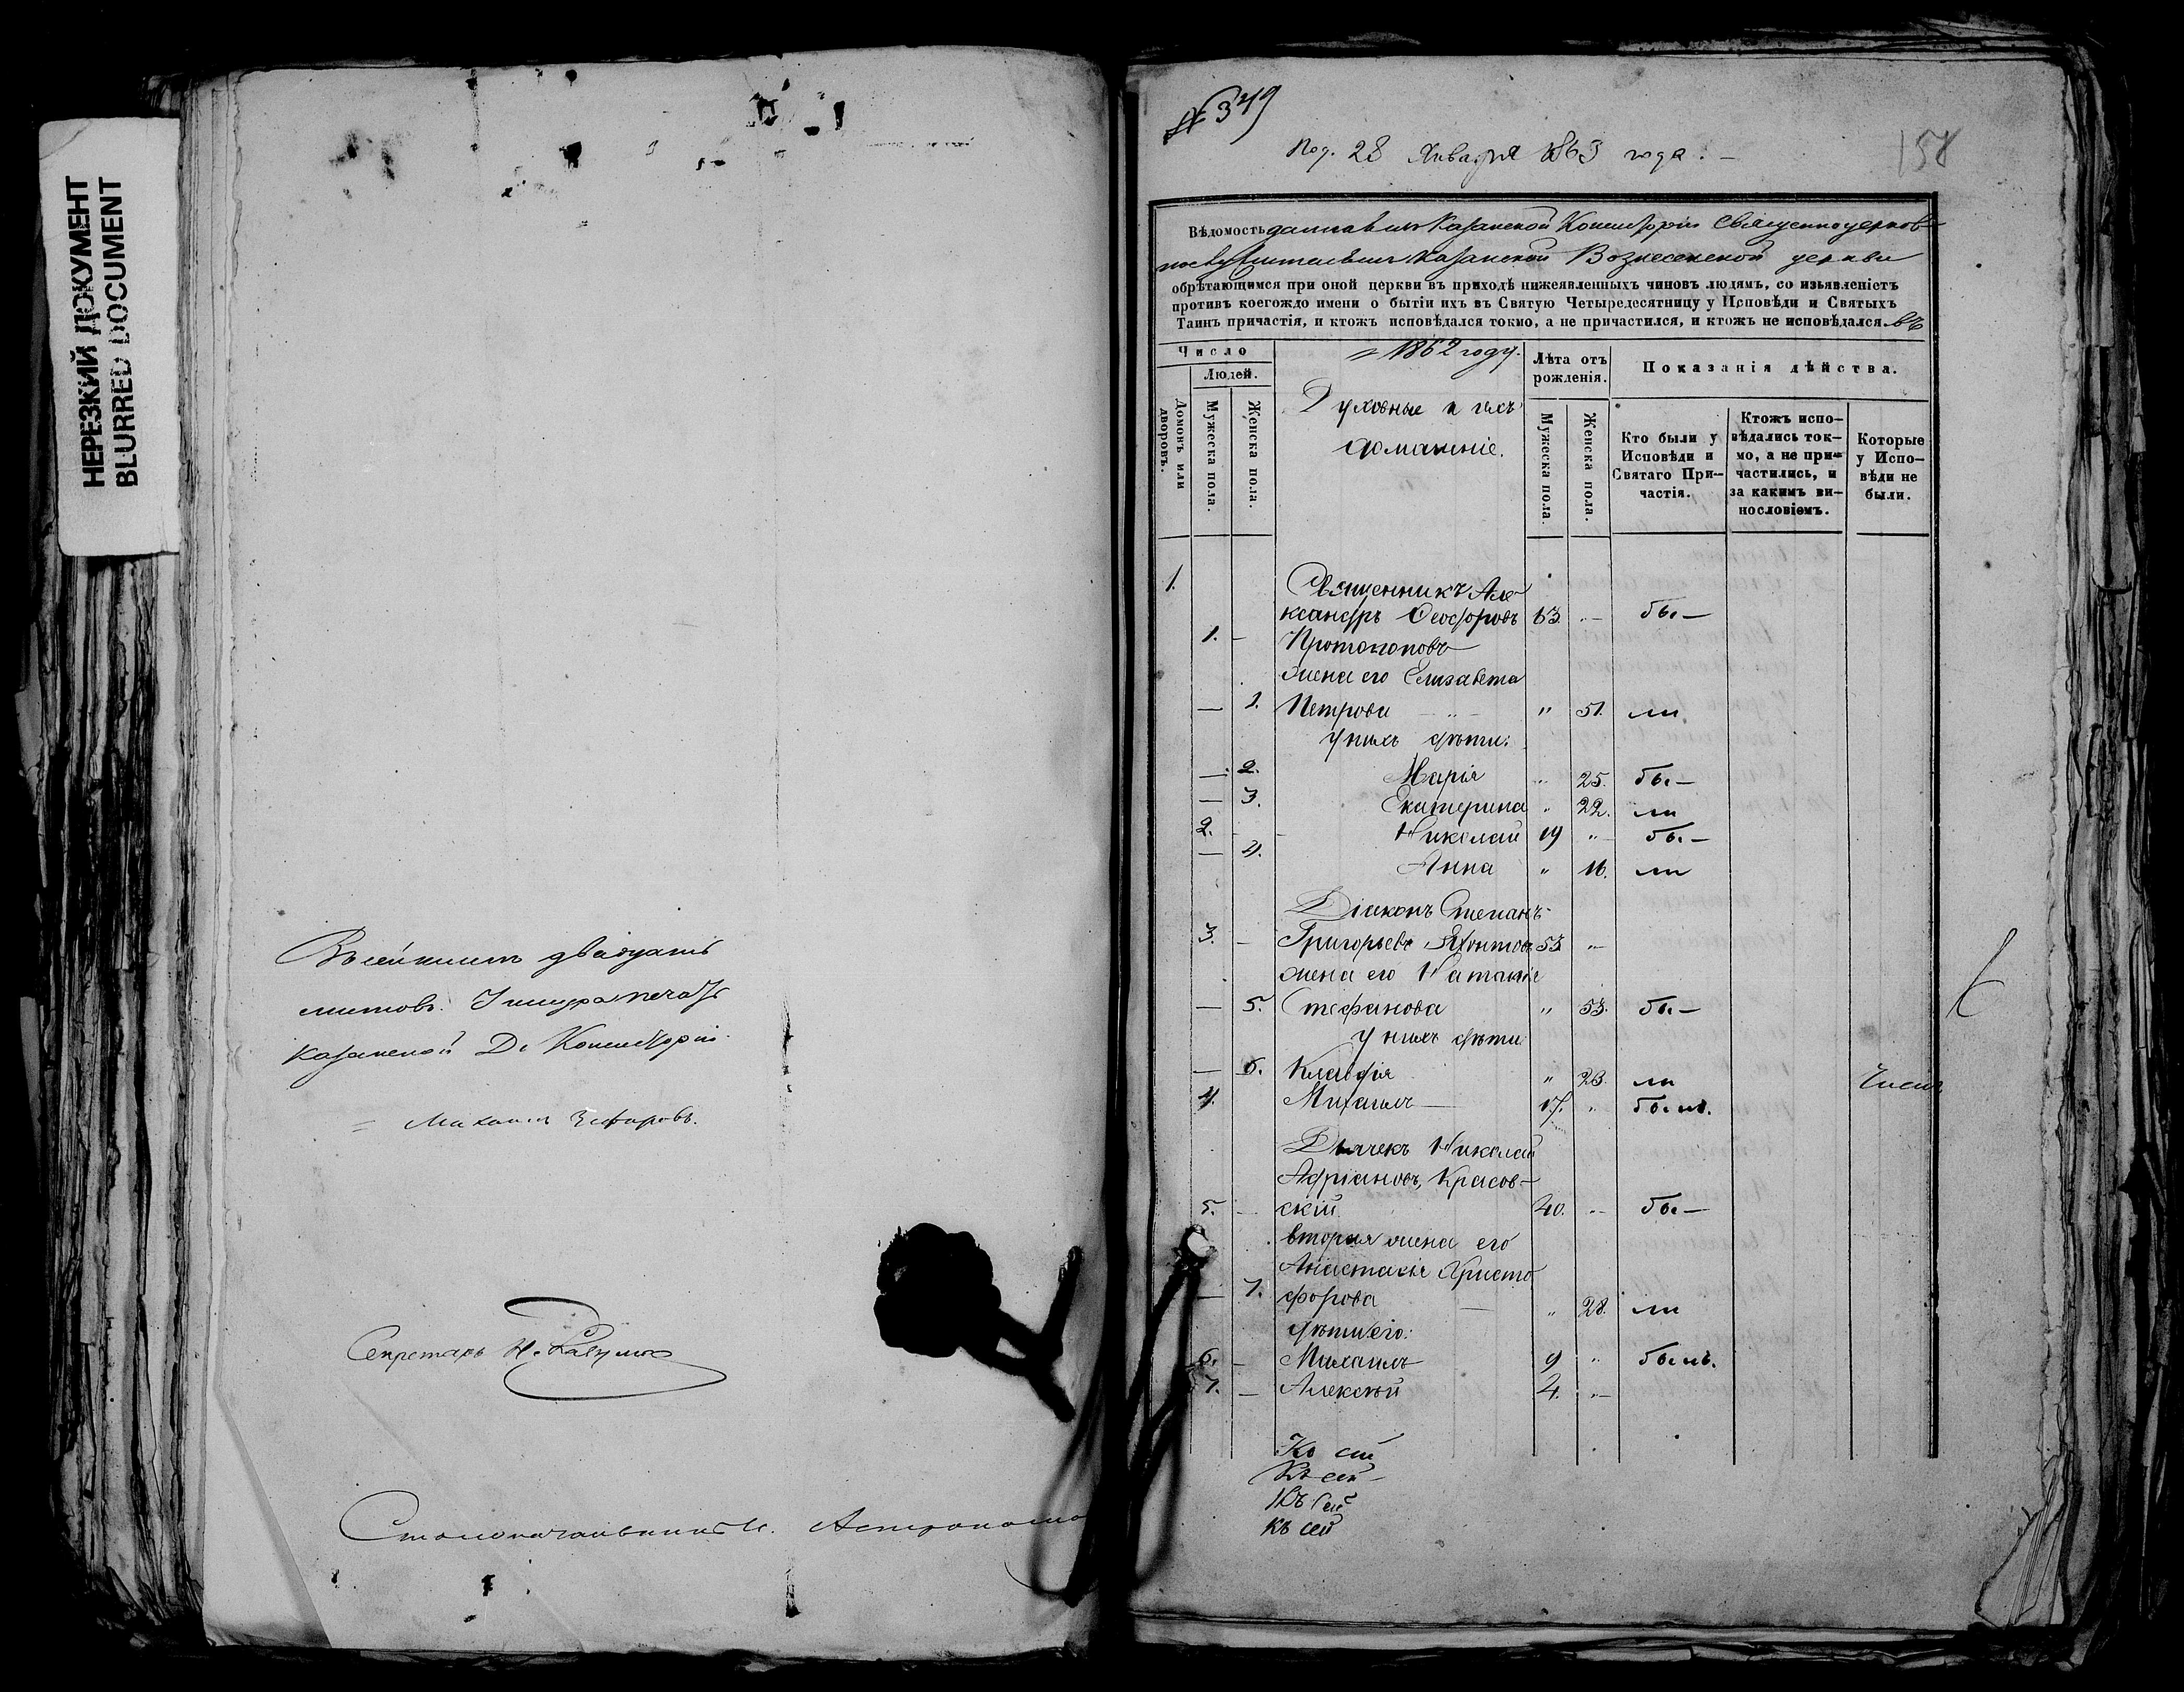 НЕРЕЗКИЙ ДОКУМЕНТ
BLURRED DOCUMENT
двадцать
листовъ.
Казанской Д. Консисторіи.
Михаилъ Зефировъ.
Секретарь Н.
Столоначальникъ
№ 349
Под. 28 Января 1863 года. —
158
Вѣдомость данная изъ Казанской Консисторіи Священноцерков-
нослужителямъ Казанской Вознесенской церкви
обрѣтающимся при оной церкви въ приходѣ нижеявленныхъ чиновъ людямъ, со изъявленіемъ
противъ коегождо имени о бытіи ихъ въ Святую Четыредесятницу у Исповѣди и Святыхъ
Таинъ причастія, и ктожъ исповѣдался токмо, а не причастился, и ктожъ не исповѣдался въ
1862 году.
Число
Людей.
Домовъ или дворовъ.
Мужеска пола.
Женска пола.
Духовные и ихъ
домашніе.
Лѣта отъ рожденія.
Мужеска пола.
Женска пола.
Показанія дѣйства.
Кто были у Исповѣди и Святаго При-частія.
Ктожъ испо-вѣдались ток-мо, а не при-частились, и за какимъ ви-нословіемъ.
Которые у Испо-вѣди не были.
1. Священникъ Але-
ксандръ Ѳеодоровъ 63. " — бы —
1. — Протопоповъ
жена его Елизавета
— 1. Петрова — " — " 51. ли
у нихъ дѣти:
— 2. Марія " 25. бы —
— 3. Екатерина " 22. ли
2. — Николай 19 " бы —
— 4. Анна " 16. ли
Діаконъ Стефанъ
3. — Григорьевъ 53 "
жена его Наталія
— 5. Стефанова " 53. бы —
у нихъ дѣти
— 6. Клавдія " 23. ли
4. Михаилъ — 17. " были.
Дьячекъ Николай
Адріановъ Красов-
5. — скій 40. " бы —
вторая жена его
Анастасія Христо
— 7. форова — " 28. ли
дѣти его:
6. — Михаилъ 9 " былъ.
7. — Алексѣй 4. "
Къ сей
Къ сей
Къ сей
Къ сей